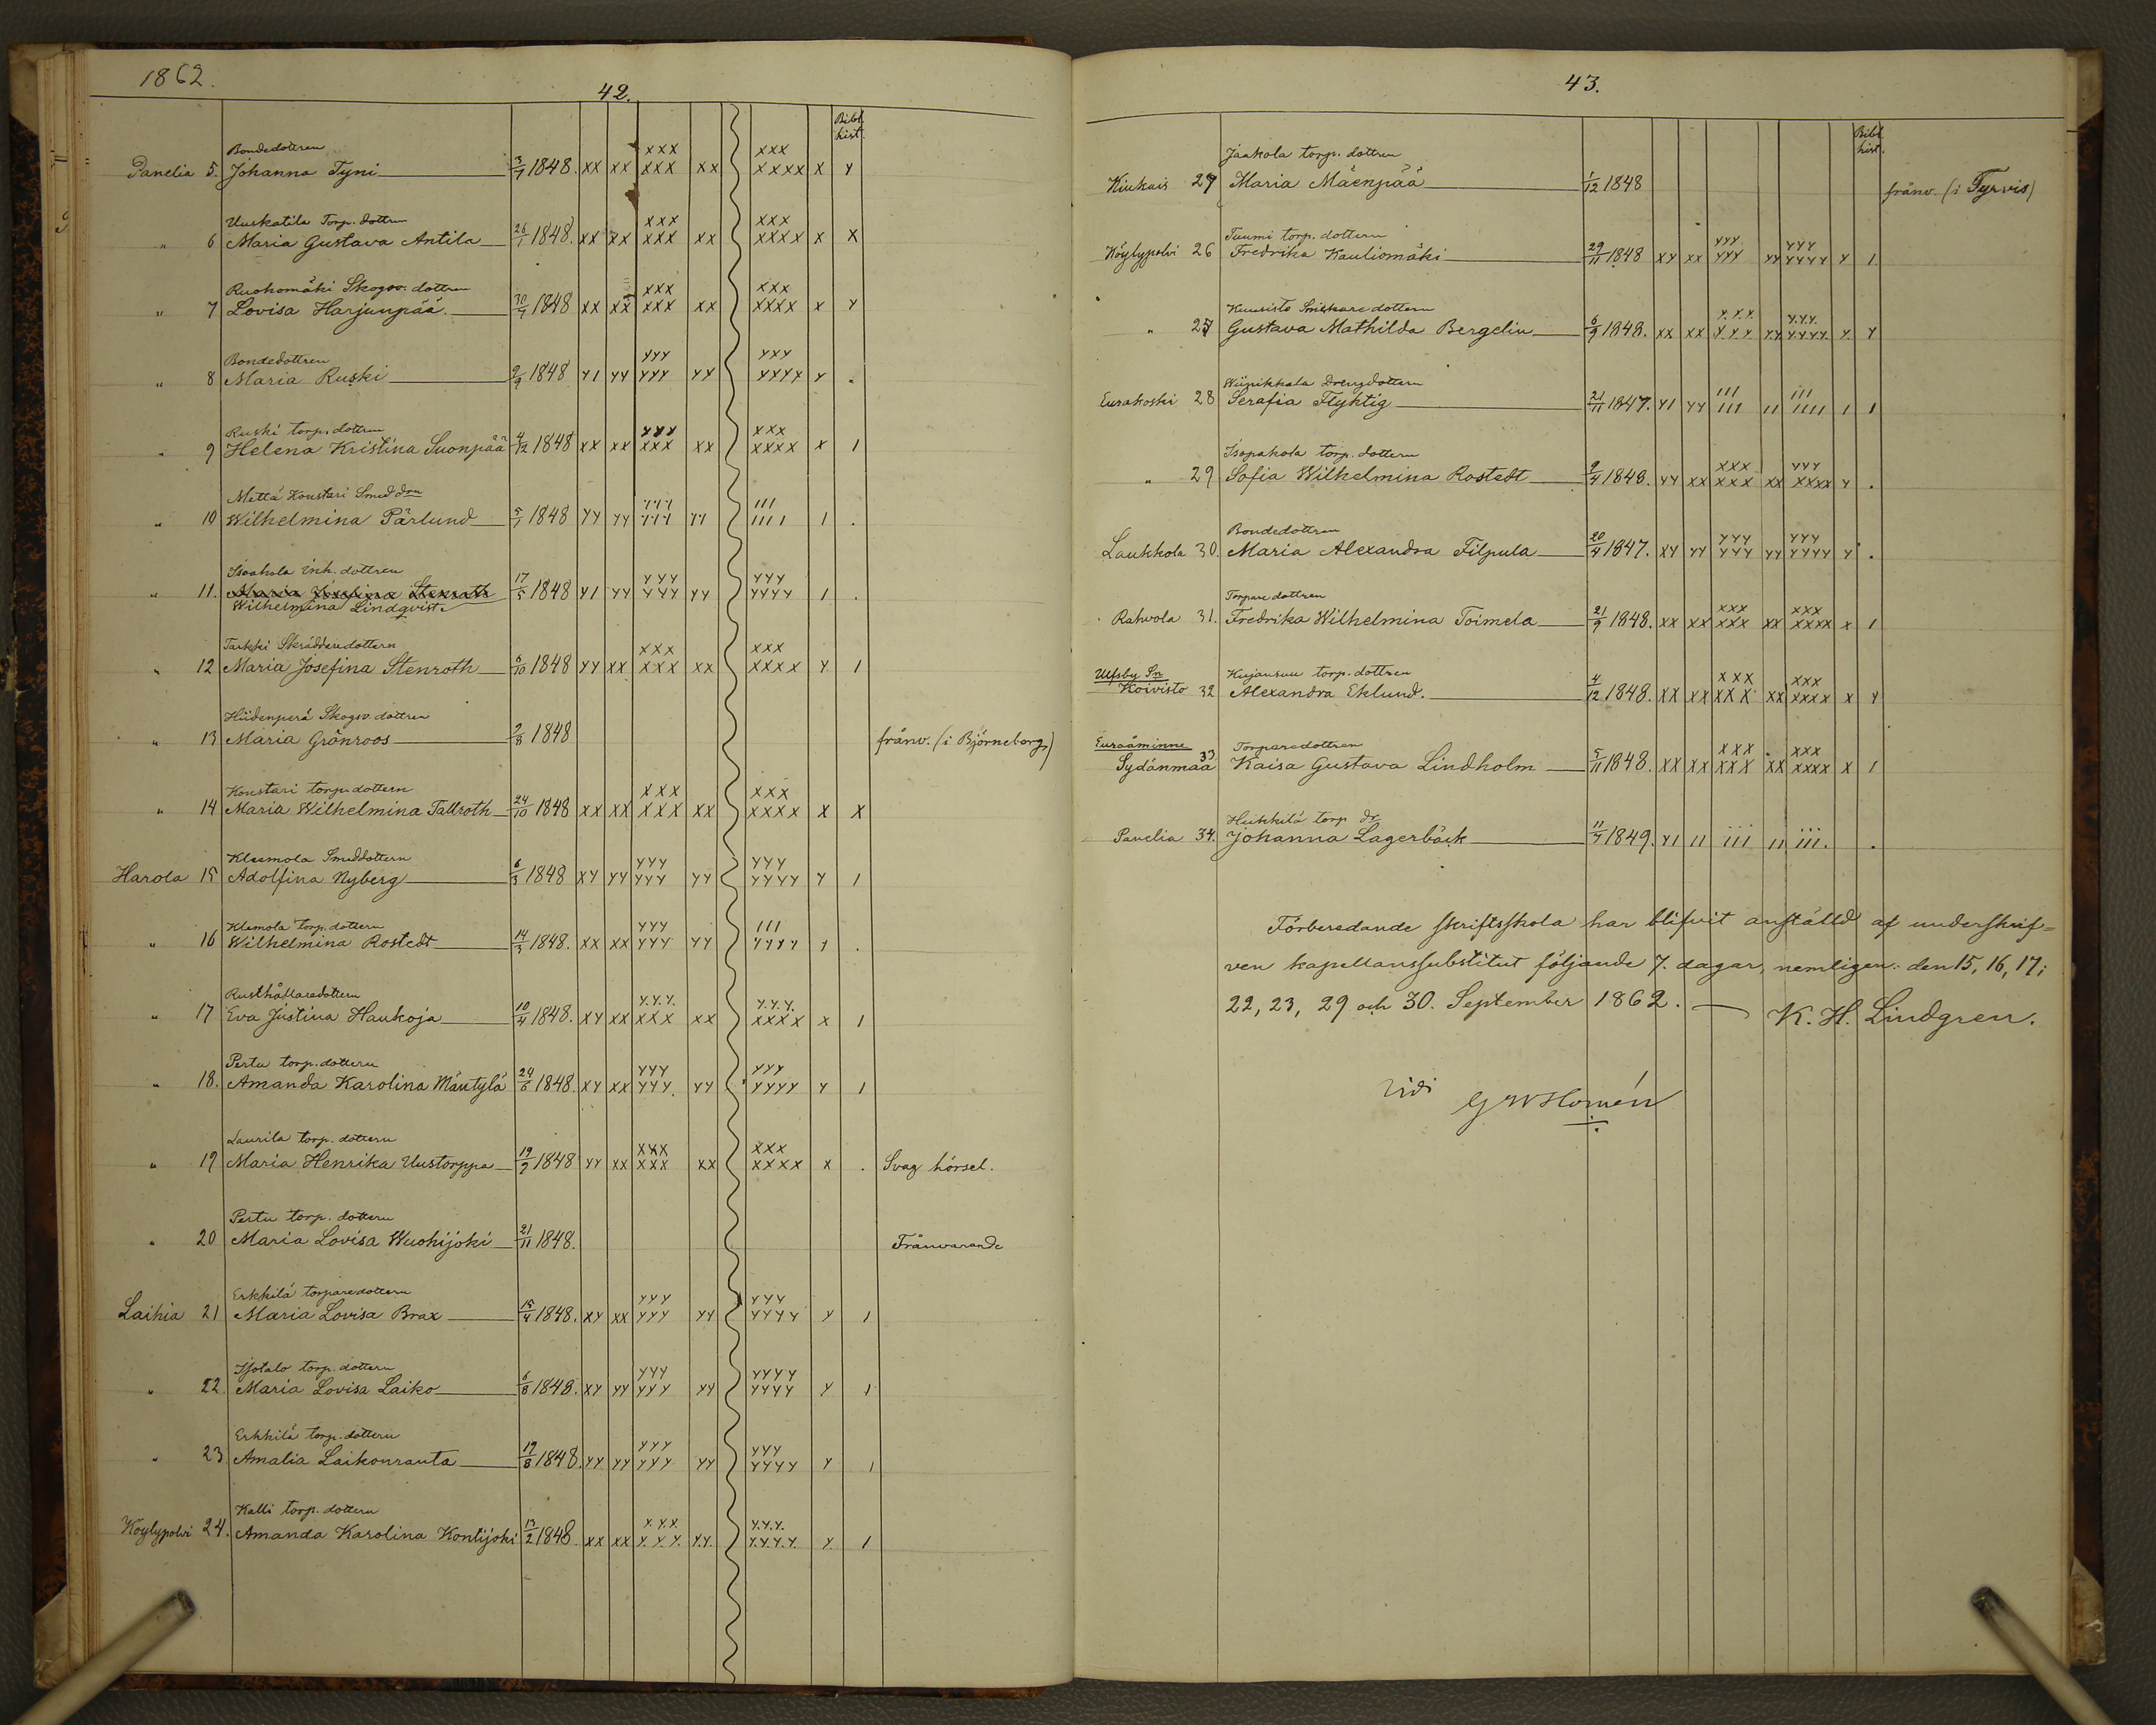 1862.
42.
Bibl.
hist.
Bondedottren
Panelia 5. Johanna Tyni 3/7 1848. xx xx xxx xxx xx xxx xxxx x y
Uuskatila Torp. dottren
" 6 Maria Gustava Antila 26/1 1848. xx xx xxx xxx xx xxx xxxx x x
Ruohomäki Skogsv. dottren
" 7 Lovisa Harjunpää 30/7 1848 xx xx xxx xxx xx xxx xxxx x y
Bondedottren
" 8 Maria Ruski 2/9 1848 y1 yy yyy yyy yy yxy yyyy y .
Ruski torp. dottren
" 9 Helena Kristina Suonpää 4/12 1848 xx xx yyy xxx xx xxx xxxx x 1
Mettä Konstari Smed drn
" 10 Wilhelmina Pärlund 5/1 1848 yy yy yyy yyy yy 111 1111 1 .
Isoahola Inh. dottren
" 11. Maria Josefina Stenroth 17/5 1848 y1 yy yyy yyy yy yyy yyyy 1 .
Wilhelmina Lindqvist
Tarkki Skräddaredottern
" 12 Maria Josefina Stenroth 6/10 1848 yy xx xxx xxx xx xxx xxxx y 1
Hiidenperä Skogsv. dottren
" 13 Maria Grönroos 2/8 1848 frånv. (i Björneborg)
Konstari torp. dottern
" 14 Maria Wilhelmina Tallroth 24/10 1848 xx xx xxx xxx xx xxx xxxx x x
Klemola Smeddottern
Harola 15 Adolfina Nyberg 6/3 1848 xy yy yyy yyy yy yyy yyyy y 1
Klemola torp. dottern
" 16 Wilhelmina Rostedt 14/3 1848. xx xx yyy yyy yy 111 yyyy 1 .
Rusthållaredottern
" 17 Eva Justina Haukoja 10/4 1848. xy xx y.y.y. xxx xx y.y.y. xxxx x 1
Pertu torp. dottern
" 18. Amanda Karolina Mäntylä 24/6 1848. xy xx yyy yyy. yy yyy yyyy y 1
Laurila torp. dottern
" 19 Maria Henrika Uustorppa 19/9 1848 yy xx xxx xxx xx xxx xxxx x . Svag hörsel.
Pertu torp. dottern
" 20 Maria Lovisa Wuohijoki 21/11 1848. Frånvarande
Erkkilä torparedottern
Laihia 21 Maria Lovisa Brax 15/4 1848. xy xx yyy yyy yy yyy yyyy y 1
Isotalo torp. dottern
" 22. Maria Lovisa Laiko 6/8 1848. xy yy yyy yyy yy yyyy yyyy y 1
Erkkilä torp. dottern
" 23 Amalia Laikonranta 19/8 1848. yy yy yyy yyy yy yyy yyyy y 1
Kalli torp. dottern
Köylypolvi 24. Amanda Karolina Kontijoki 13/2 1848. xx xx x.x.x. y.y.y. y.y. y.y.y. y.y.y.y. y. 1
43.
Bibl.
hist.
Jaakola torp. dottren
Kiukais 27 Maria Mäenpää 1/12 1848 frånv. (i Tyrvis)
Tuumi torp. dottern
Köylypolvi 26 Fredrika Kauliomäki 29/11 1848 xy xx yyy yyy yy yyy yyyy y 1.
Kuusisto Snickaredottern
" 25 Gustava Mathilda Bergelin 6/9 1848. xx xx x.x.x. y.y.y. y.y. y.y.y. y.y.y.y. y. y
Wiinikkala Drengdottern
Eurakoski 28 Serafia Flyktig 21/11 1847. y1 yy 111 111 11 111 1111 1 1
Isopahola torp. dottern
" 29 Sofia Wilhelmina Rostedt 9/4 1848. yy xx xxx xxx xx yyy xxxx y .
Bondedottren
Laukkola 30. Maria Alexandra Filpula 20/4 1847. xy yy yyy yyy yy yyy yyyy y .
Torparedottren
Rahvola 31. Fredrika Wilhelmina Toimela 21/9 1848. xx xx xxx xxx xx xxx xxxx x 1
Ulfsby Sn Kujansuu torp. dottren
Koivisto 32 Alexandra Eklund. 4/12 1848. xx xx xxx xxx xx xxx xxxx x y
Euraåminne Torparedottren
Sydänmaa 33 Kaisa Gustava Lindholm 5/11 1848. xx xx xxx xxx xx xxx xxxx x 1
Heikkilä torp dr
Panelia 34. Johanna Lagerbäck 11/7 1849. y1 11 ... 111 11 ... 111. .
Förberedande skriftsskola har blifvit anstäld af underskrif=
ven kapellanssubstitut följande 7. dagar, nemligen: den 15, 16, 17;
22, 23, 29 och 30. September 1862. — K. H. Lindgren.
Vidi G W Homén